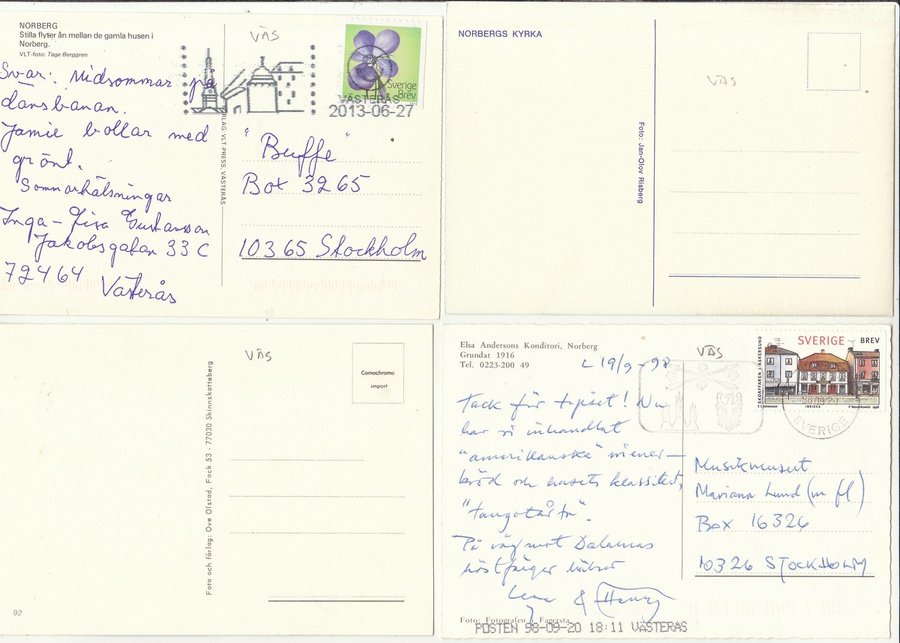 NORBERG
Stilla flyter ån mellan de gamla husen i
Norberg.
VLT-foto: Tage Berggren
VÄS
Sverige
Brev
VÄSTERÅS
2013-06-27
Svar: Midsommar på
dansbanan.
Jamie bollar med
grönt.
Sommarhälsningar
Inga-Lisa Gustavsson
Jakobsgatan 33 C
72464 Västerås
FÖRLAG VLT-PRESS, VÄSTERÅS
"Buffé"
Box 3265
10365 Stockholm
NORBERGS KYRKA
VÄS
Foto: Jan-Olov Risberg
VÄS
Comochrome
import
Foto och förlag: Ove Olstad, Fack 53 - 77030 Skinnskatteberg
92
Elsa Andersons Konditori, Norberg
Grundat 1916
Tel. 0223-200 49
L 19/9-98
VÄS
SVERIGE BREV
SKOAFFÄREN I ASKERSUND
SVERIGE
Tack för tipset! Nu
har vi inhandlat
"amerikanska" wiener-
bröd och husets klassiker,
"tangotårta".
På väg mot Dalarnas
höstfärger hälsar
Lena & Henry
Musikmuseet
Mariana Lund (m fl)
Box 16326
10326 STOCKHOLM
Foto: Fotografen i Fagersta
POSTEN 98-09-20 18:11 VÄSTERÅS